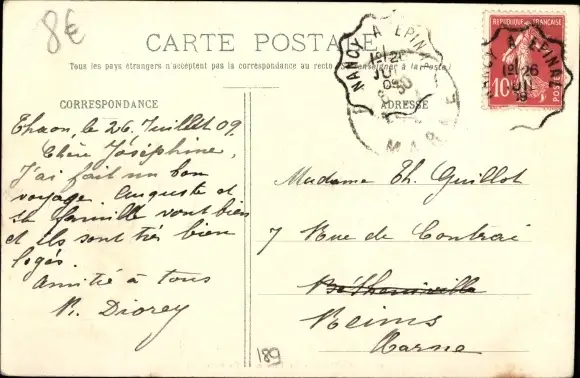 8€
CARTE POSTALE
Tous les pays étrangers n'acceptent pas la correspondance au recto (se renseigner à la Poste)
CORRESPONDANCE
Thaon, le 26 Juillet 09.
Chère Joséphine,
J'ai fait un bon
voyage. Auguste et
sa famille vont bien
et ils sont très bien
logés.
Amitié à tous
R. Diorey
NANCY A EPINAL
1º 26
09
ADRESSE
MARNE
REPUBLIQUE FRANÇAISE
10
POSTES
NANCY A EPINAL
1º 26
Madame Th. Guillot
7 Rue de Contrai
Bétheniville
Reims
Marne
189